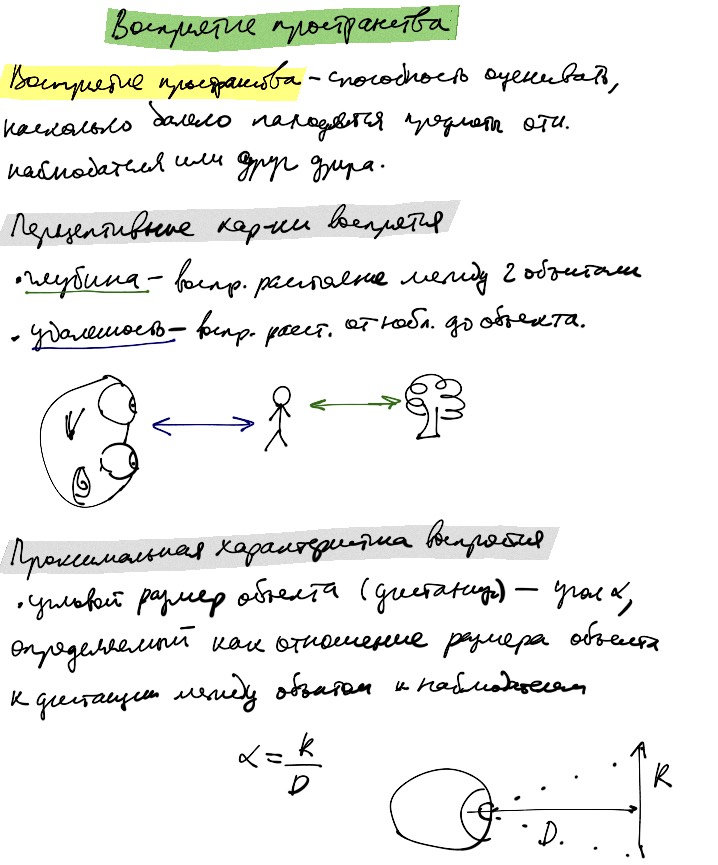 Восприятие пространства
Восприятие пространства – способность оценивать,
насколько далеко находятся предметы отн.
наблюдателя или друг друга.
Перцептивные хар-ки восприятия
• глубина – воспр. расстояние между 2 объектами
• удаленность – воспр. расст. от набл. до объекта.
Проксимальная характеристика восприятия
• угловой размер объекта (дистанция) – угол α,
определяемый как отношение размера объекта
к дистанции между объектом и наблюдателем
α = R/D
R
D